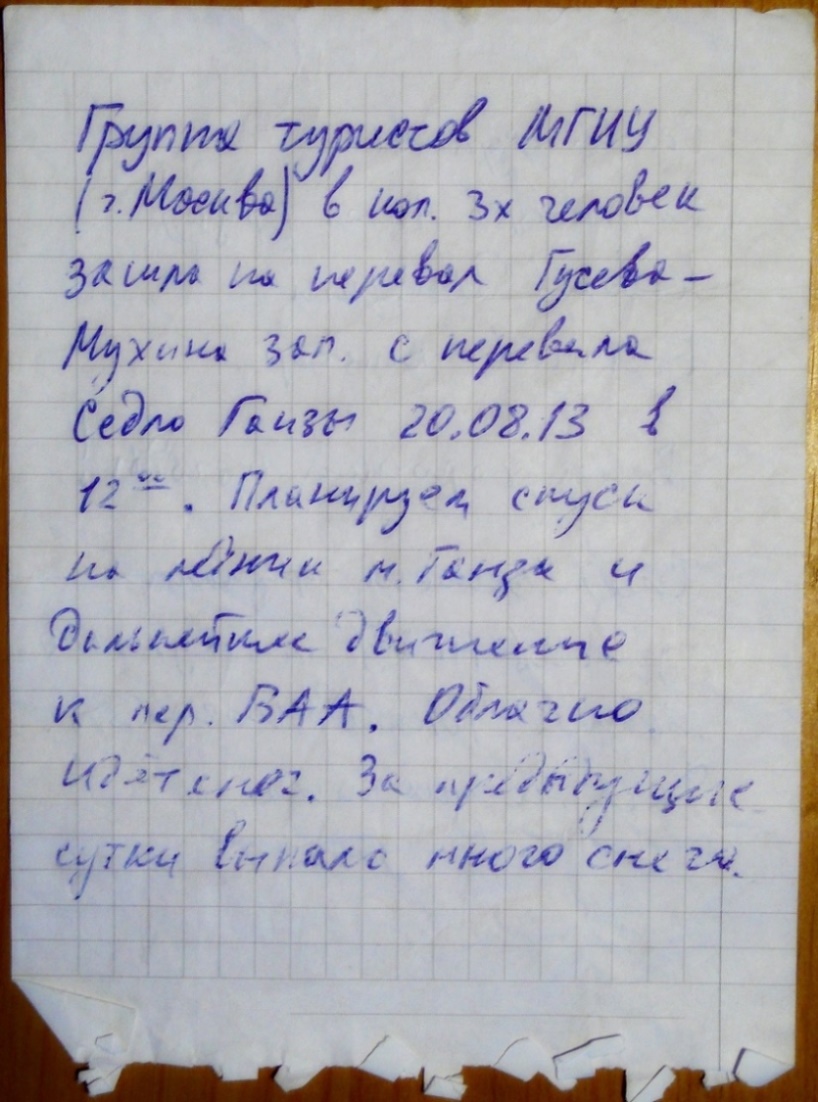 Группа туристов МГИУ
(г. Москва) в кол. 3х человек
зашла на перевал Гусева-
Мухина зап. с перевала
Седло Ганзы 20.08.13 в
12⁰⁰. Планируем спуск
на ледник м. Ганза и
дальнейшее движение
к пер. ВАА. Облачно
идёт снег. За предыдущие
сутки выпало много снега.